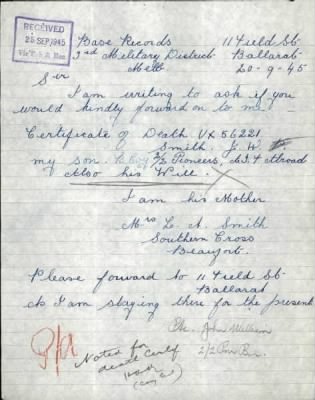 RECEIVED
25 SEP 1945
Base Records 11 Field St
3rd Military District Ballarat
Melb 20-9-45
Sir
I am writing to ask if you
would kindly forward on to me
Certificate of Death VX 56221
Smith. J. W.
my son 2/2 Pioneers, A.I.F. Abroad
Also his Will.
I am his Mother
Mrs L. A. Smith
Southern Cross
Beaufort.
Please forward to 11 Field St
Ballarat
As I am staying there for the present
P/A
Noted for
death Certif
John William
2/2 Pnr Bn.